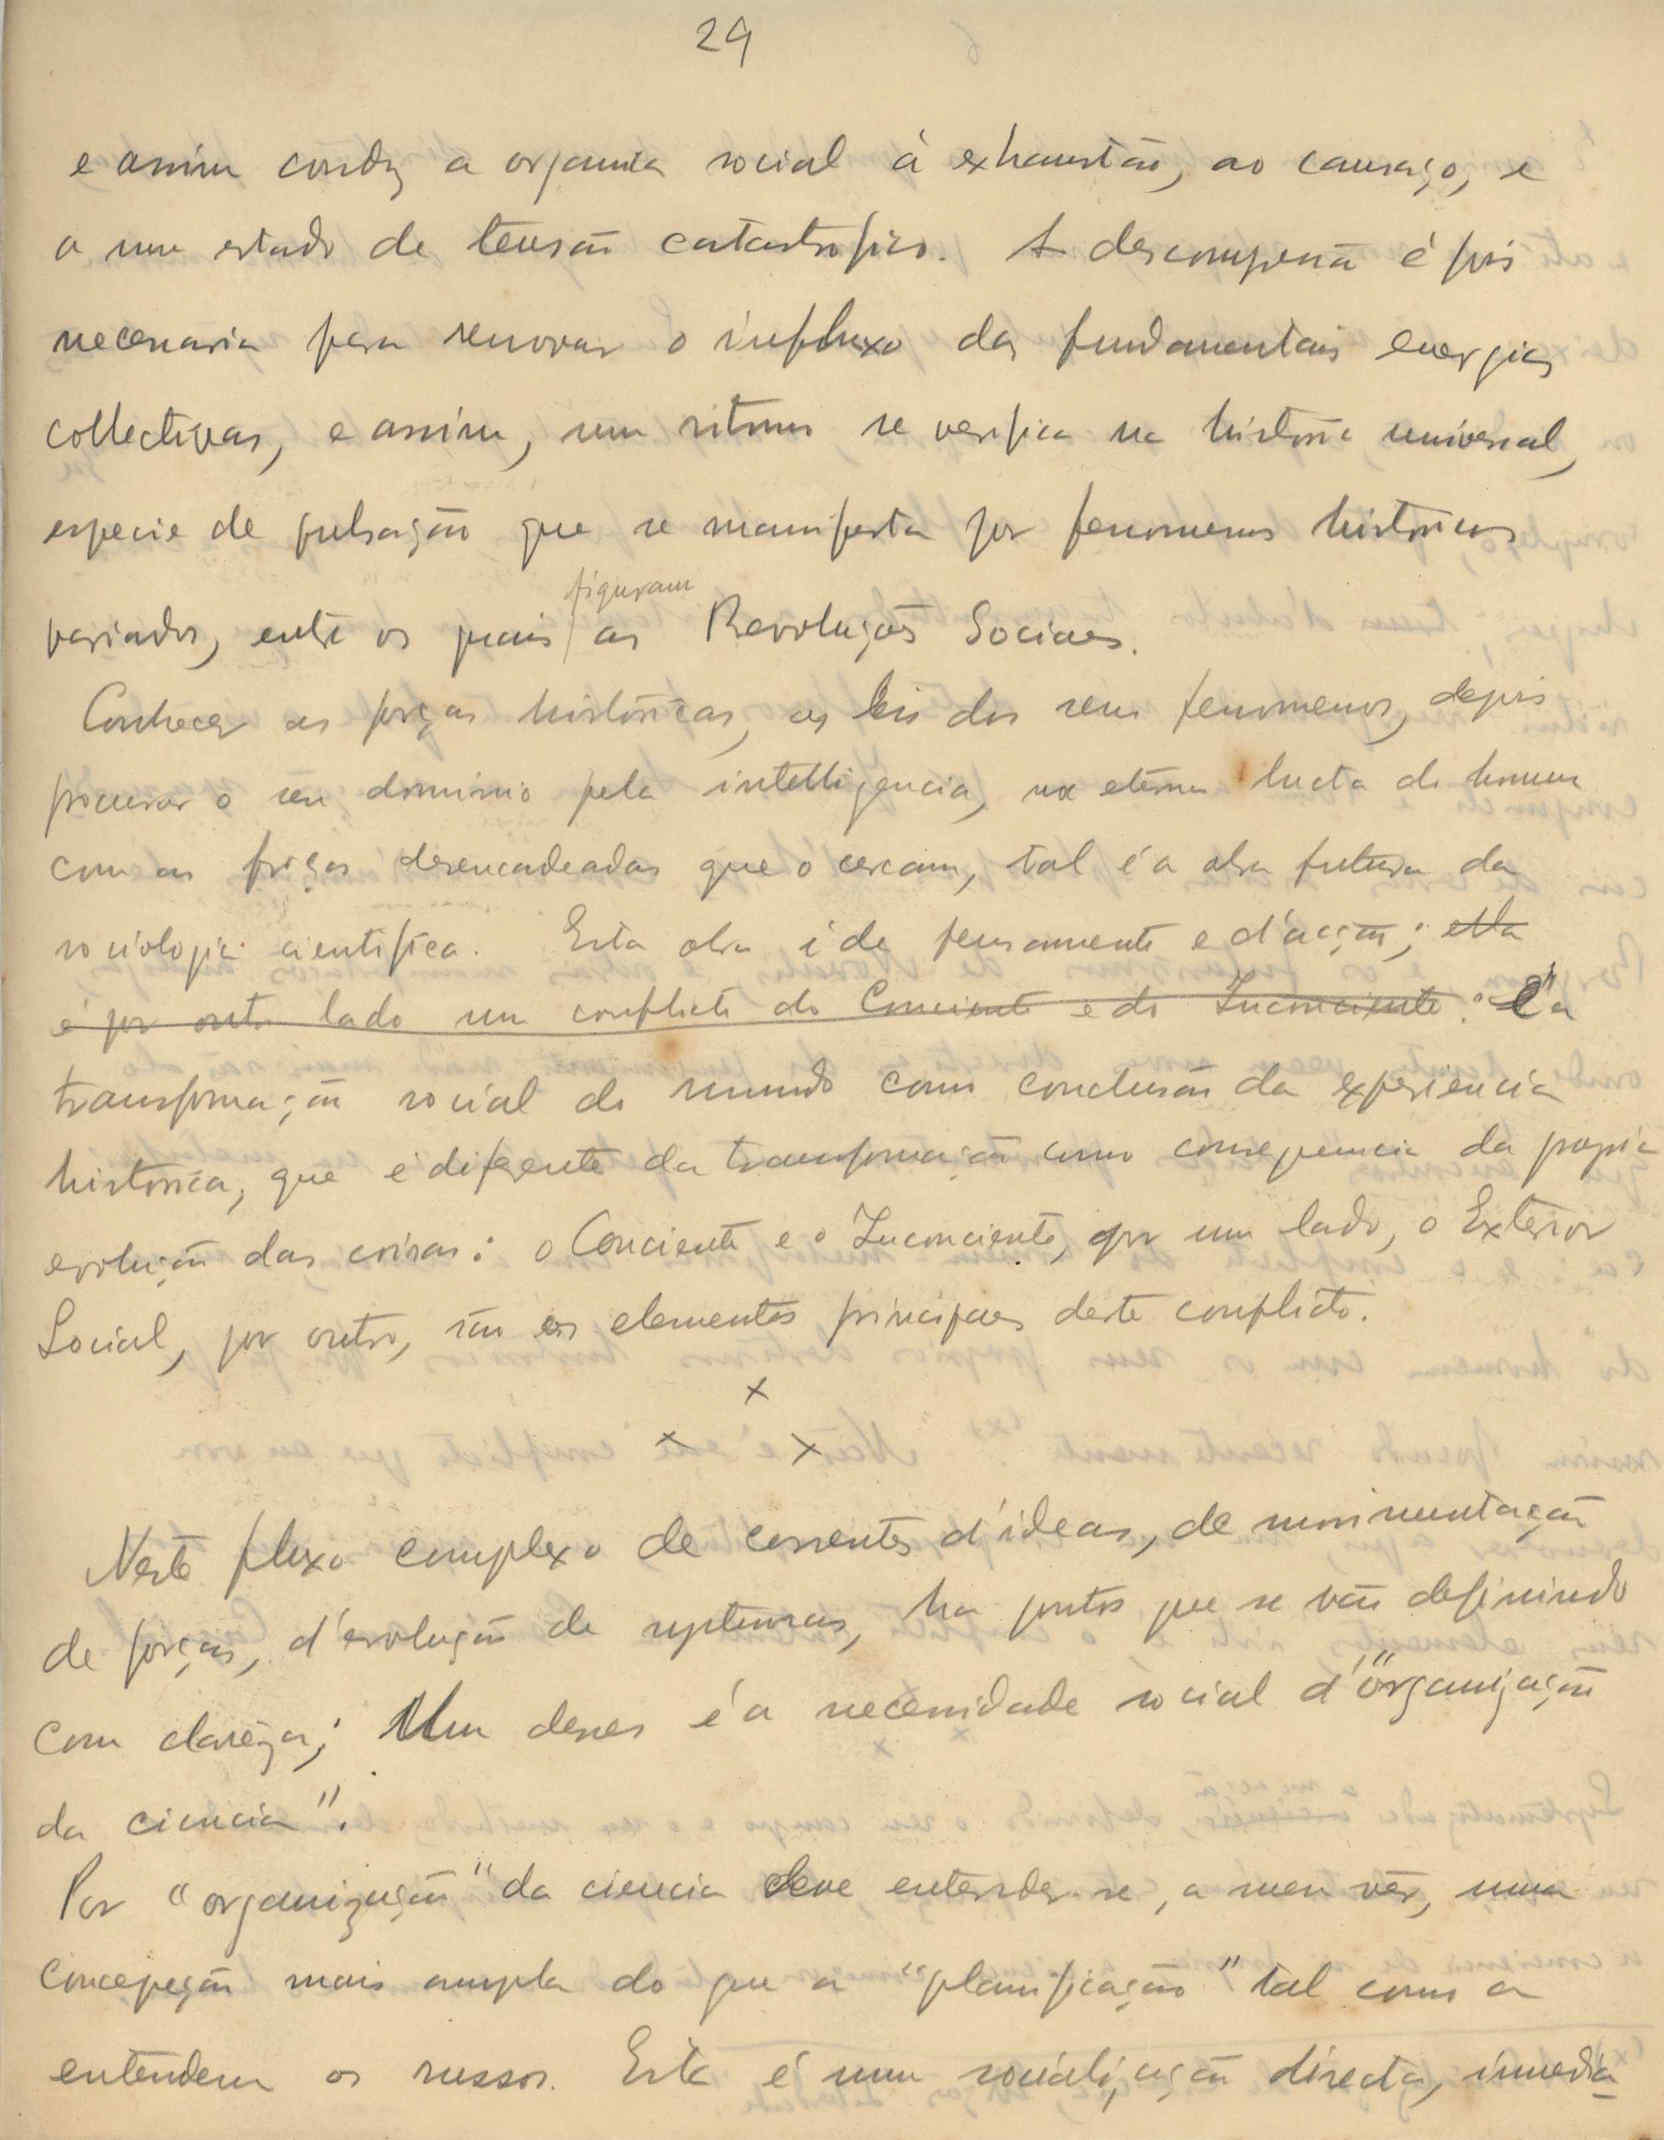 29
e assim conduz a organica social á exhaustão, ao cansaço, e
a um estado de tensão catastrofico. A descompensão é pois
necessaria para renovar o influxo das fundamentais energias
collectivas, e assim, um ritmo se verifica na historia universal,
especie de pulsação que se manifesta por fenomenos historicos
figuram
variados, entre os quais as Revoluções Sociaes.
Conhecer as forças históricas, as leis dos seus fenomenos, depois
procurar o seu dominio pela intelligencia, na eterna lucta do homem
com as forças desencadeadas que o cercam, tal é a obra futura da
sociologia cientifica. Esta obra é de pensamento e d'acção; ella
é por outro lado um conflicto do Conciente e do Inconciente: É a
transformação social do mundo como conclusão da experiencia
historica, que é diferente da transformação como consequencia da propria
evolução das coisas: o Conciente e o Inconciente, por um lado, o Exterior
Social, por outro, são os elementos principaes deste conflicto.
x
x x
Neste fluxo complexo de correntes d'ideas, de movimentação
de forças, d'evolução de systemas, ha pontos que se vão definindo
com clareza; Um desses é a necessidade social d'"organização
da ciencia".
Por "organização" da ciencia deve entender-se, a meu vêr, uma
concepção mais ampla do que a "planificação" tal como a
entendem os russos. Esta é uma socialização directa, immedia-